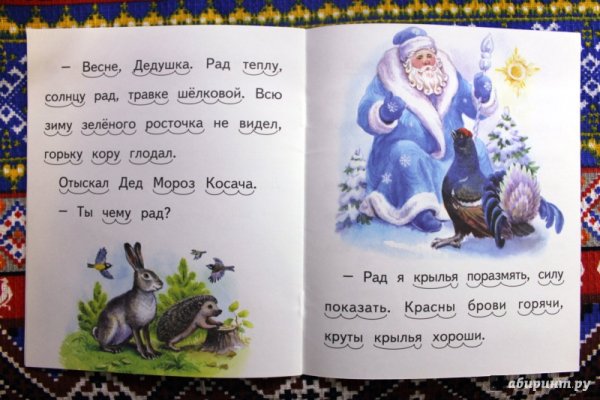 – Весне, Дедушка. Рад теплу,
солнцу рад, травке шёлковой. Всю
зиму зелёного росточка не видел,
горьку кору глодал.
Отыскал Дед Мороз Косача.
– Ты чему рад?
– Рад я крылья поразмять, силу
показать. Красны брови горячи,
круты крылья хороши.
абиринт.ру